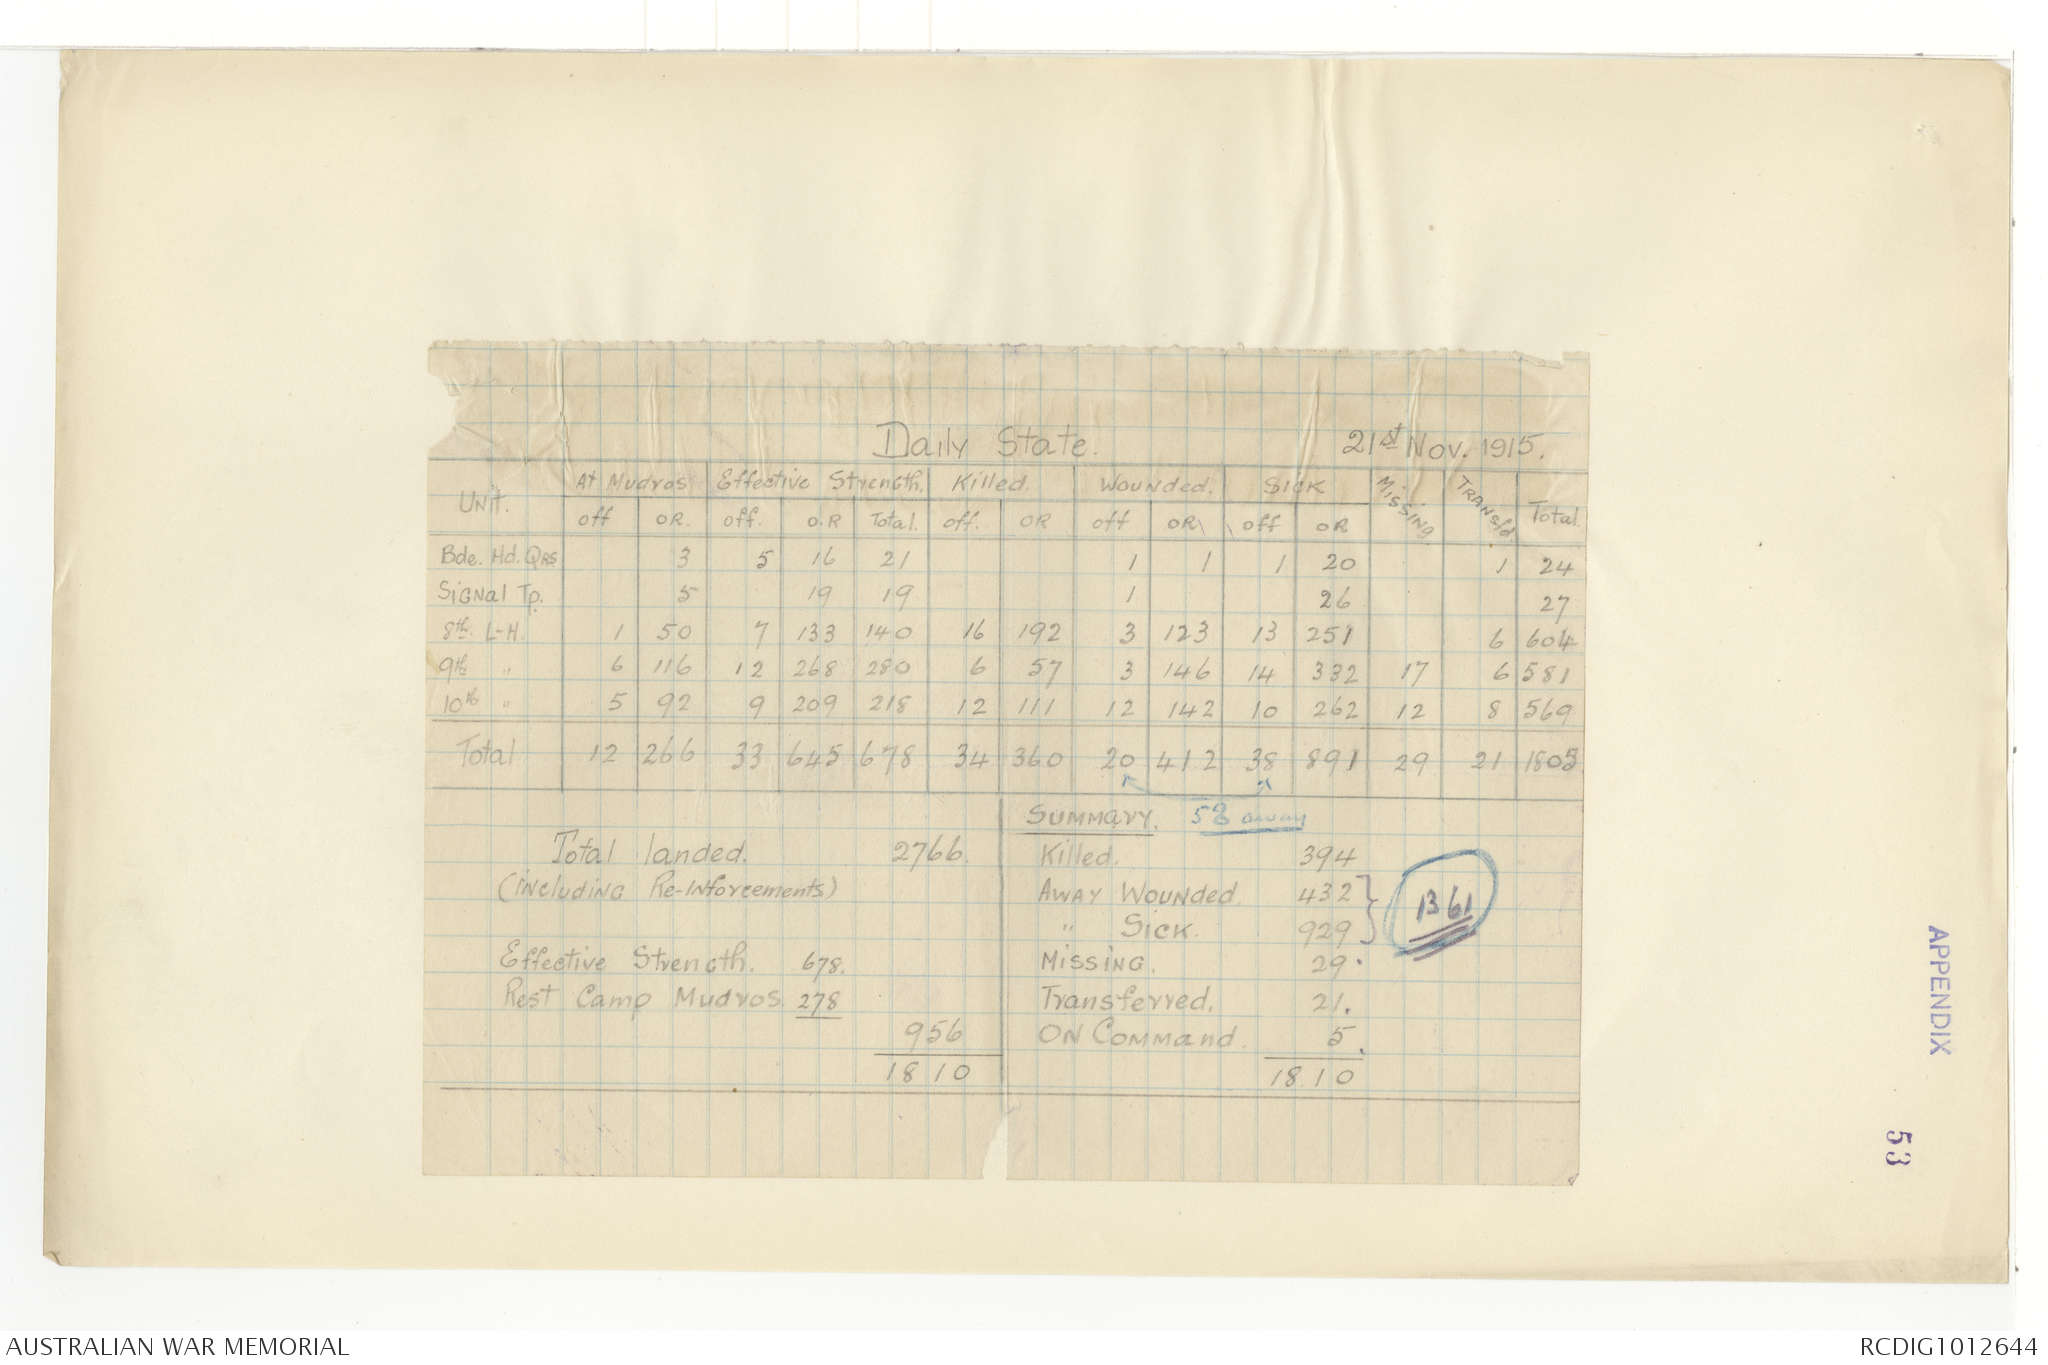 Daily State. 21st Nov. 1915.
Unit. At Mudros Effective Strength. Killed. Wounded. Sick Missing Transfd. Total.
off OR. off. O.R Total. off. OR off OR off OR
Bde. Hd. Qrs 3 5 16 21 1 1 1 20 1 24
Signal Tp. 5 19 19 1 26 27
8th. L-H. 1 50 7 133 140 16 192 3 123 13 251 6 604
9th " 6 116 12 268 280 6 57 3 146 14 332 17 6 581
10th " 5 92 9 209 218 12 111 12 142 10 262 12 8 569
Total 12 266 33 645 678 34 360 20 412 38 891 29 21 1805
58 away
Total landed. 2766.
(including Re-inforcements)
Effective Strength. 678.
Rest Camp Mudros. 278
956
1810
Summary.
Killed. 394
Away Wounded. 432
" Sick. 929
1361
Missing. 29.
Transferred. 21.
On Command. 5.
1810
APPENDIX
53
AUSTRALIAN WAR MEMORIAL
RCDIG1012644